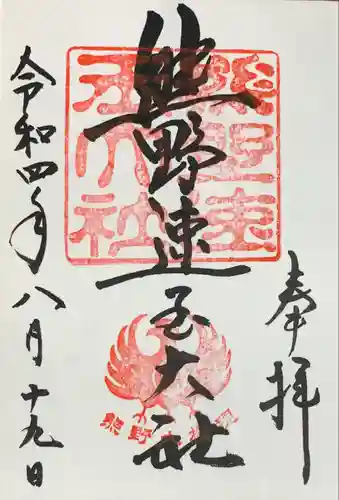 奉拝
熊野速玉大社
熊野速玉大社
令和四年八月十九日